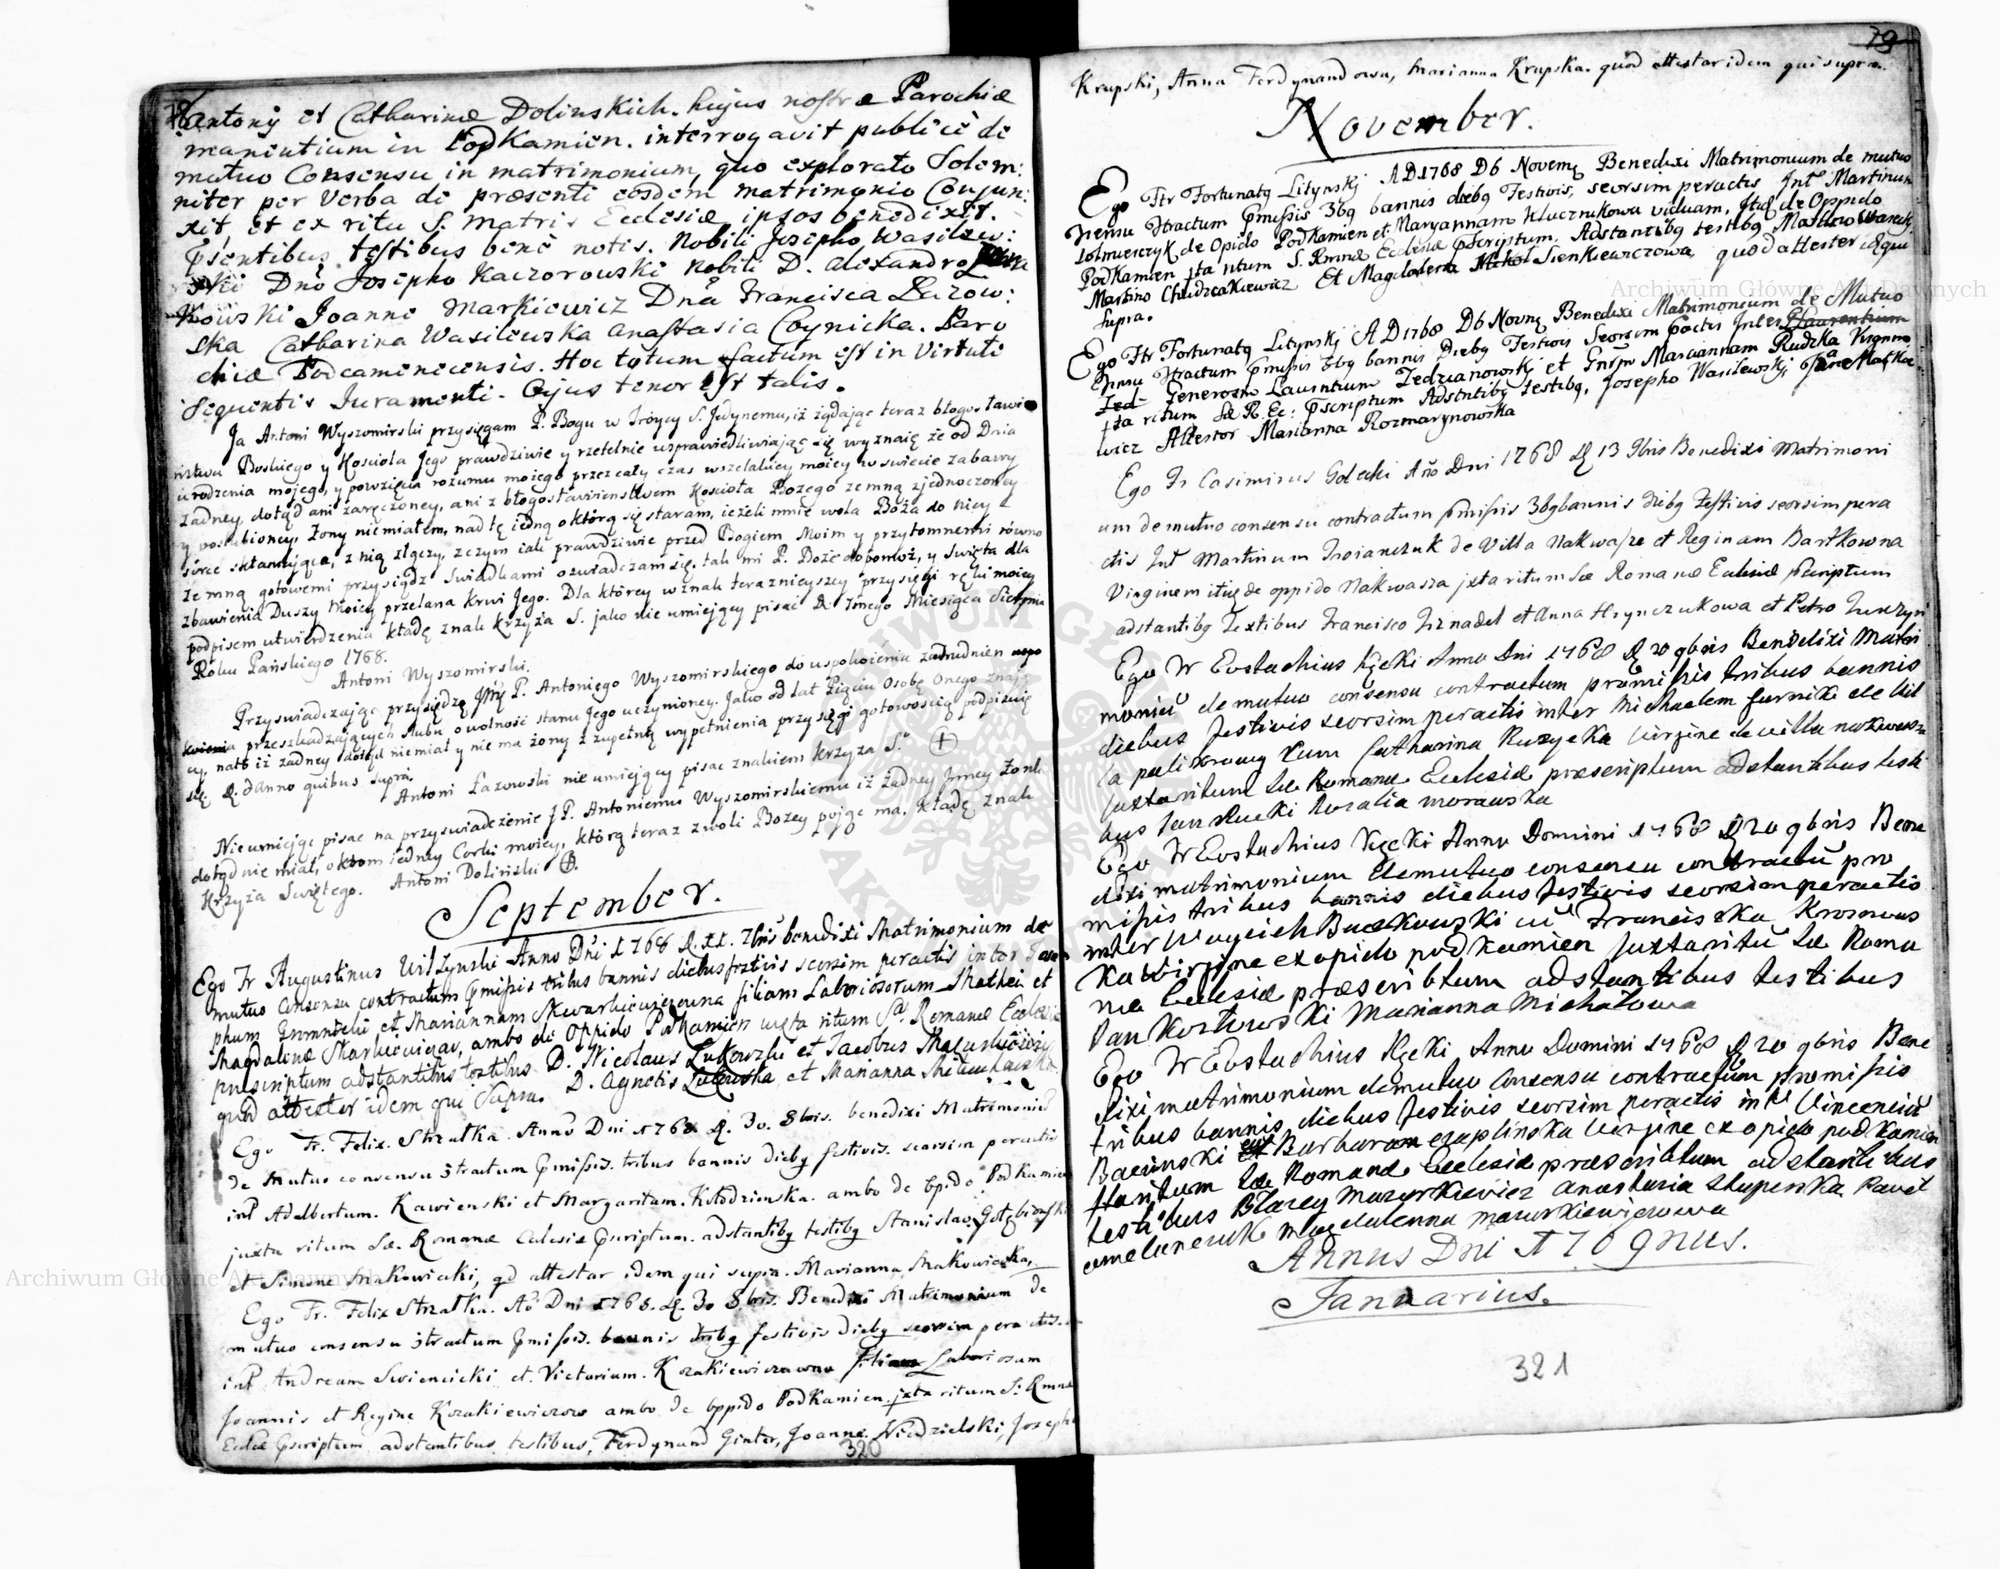 78
Antonij et Catharinæ Dolinskich. hujus nostræ Parochiæ
manentium in PodKamien. interrogavit publicè de
mutuo Consensu in matrimonium, quo explorato Solem:
niter per Verba de præsenti eosdem matrimonio Conjun:
xit, et ex ritu S. Matris Ecclesiæ ipsos benedixit.
Psentibus testibus benè notis. Nobili Josepho Wasilew:
ski Dnō Josepho Kaczorowski Nobili D. Alexandro
Kowski Joanne Markiewicz Dnā Francisca Lazow:
ska Catharina Wasilewska Anastasia Coynicka. Paro
chiæ Podcamenecensis. Hoc totum factum est in Virtute
Sequentis Juramenti. Cujus tenor est talis.
Ja Antoni Wyszomirski przysięgam P. Bogu w Tróycy S. Jedynemu, iż żądając teraz błogosławie
ństwa Boskiego y Kościoła Jego prawdziwie y rzetelnie usprawiedliwiając się wyznaię że od Dnia
urodzenia mojego, y powzięcia rozumu mojego przez cały czas wszelakiey moiey w świecie zabawy
żadney dotąd ani zaręczoney, ani z błogosławieństwem Kościoła Bożego ze mną zjednoczoney
y poslubioney, żony nie miałem, nad tę iedną o którą się staram, ieżeli mnie wola Boża do niey
serce skłaniająca, z nią złączy, z czym iako prawdziwie przed Bogiem Moim y przytomnemi równo
ze mną gotowemi przysiądz Swiadkami oswiadczam się, tak mi P. Boże dopomoż, y Swięta dla
zbawienia Duszy Moiey przelana Krwi Jego. Dla którey wznak teraznieyszey przysięgi ręki moiey
podpisem utwierdzenia kładę znak krzyża S. jako nie umiejący pisać D. Imego Miesiąca Sierpnia
Roku Pańskiego 1768.
Antoni Wyszomirski.
Przyswiadczając przysiędze Jmę P. Antoniego Wyszomirskiego do uspokoienia zatrudnien
przeszkadzających slubu o wolność stanu Jego uczynioney. Jako od lat Pięciu Osobę Onego znają
cy, nato iż żadney dotąd niemiał y nie ma żony z zupełną wypełnienia przysięgi gotowoscią podpisuię
się D. d anno quibus supra.
Antoni Łazowski nie umiejący pisac znakiem krzyza S.
Nie umiejąc pisac na przyswiadczenie J P. Antoniemu Wyszomirskiemu iż żadney Jnney Żonk
dotąd nie miał, okrom iedney Corki moiey, którą teraz z woli Bozey pojąc ma, kładę Znak
Krzyża Swiętego. Antoni Doliński
September.
Ego Fr Augustinus Wilzynski Anno Dni 1768 D. 11. 7bris benedixi Matrimonium de
mutuo Consensu contractum pmissis tribus bannis diebus festivis seorsim peractis inter
phum et Mariannam Skwarkiewiczowna filiam Laboriosorum Mathei et
Magdalenæ Skarkiewiczow, ambo de Oppido Podkamien iuxta ritum Sæ Romanæ Ecclesiæ
præscriptum adstantibus testibus D. Nicolaus Lukowski et Jacobus
quod attestor idem qui Supra. D. Agnetis Lukowska et Marianna
Ego Fr. Felix. Strzałka. Anno Dni 1768 D. 30. 8bris. benedixi Matrimoniū
de Mutuo consensu 3tractum pmissis. tribus bannis dieby festivis. seorsim peractis
int Adelbertum. Kawienski et Margaritam. Kołodzinska. ambo de Opido PodKamien
juxta ritum Sæ. Romanæ Eclesiæ pscriptum. adstantiby testiby Stanislao Gołębiowski
et Simone Makowicki, qd attestor idem qui supra. Marianna Makowicka,
Ego Fr. Felix Strzałka. Ao Dni 1768. D. 30 8.bris. Benedixi Matrimonium de
mutuo consensu 3tractum pmissis. bannis triby festivis dieby seorsim peractis.
int Andream Swiencicki et. Victoriam. Kozakiewiczowna filiam Laboriosum
Joannis et Regine Kozakiewiczow ambo de Oppido PodKamien jxta ritum S. Rmnæ
Eccliæ pscriptum adstantibus testibus, Ferdynand Ginter, Joanne Niedzielski, Joseph
320
79
Krupski, Anna Ferdynandowa, Marianna Krupska. quod attestor idem qui supra.
November.
Ego Ftr Fortunatq Litynskj AD 1768 D 6 Novemq Benedixi Matrimonium de mutuo
3tractum pmissis 3bq bannis diebq Festivis, seorsim peractis Int Martinum
Zolnierczyk de Opido PodKamien et Maryannam Klucznikowa viduam, Itid de Oppido
PodKamien jta ritum S. Rmnæ Ecclesiæ pscriptum. Adstantibq testibq Matheo
Martino Chudzeakiewicz Et Magdalena Sienkiewczowa quod attestor idqui
Supra.
Ego Ftr Fortunatq Litynskj AD 1768 D 6 Novmq Benedixi Matrimonium de Mutuo
3tractum pmissis 3bq bannis Diebq Festivis Seorsim pactis Inter
Generosm Laurentium Zedzianowskj et Gnsm Mariannam Rudzka
jta ritum Sæ R. Ec: pscriptum Adstntibq testibq, Josepho Wasilewskj
wicz Attestor Marianna Rozmarynowska
Ego Fr Casimirus Golecki Año Dni 1768 D 13 9bris Benedixi Matrimoni
um de mutuo consensu contractum pmissis 3bq bannis diebq Festivis seorsim pera
ctis Int Martinum Troianczuk de Villa Nakwasze et Reginam Bartkowna
Virginem itidę de oppido Nakwasza jxta ritum Sæ Romanæ Eclesiæ pscriptum
adstantibq Textibus Francisco Trznadel et Anna Hrynczukowa et Petro
Ego Fr Eustachius Kęcki Anno Dni 1768 D 20 9bris Benedixi Matri
moniū de mutuo consensu contractum præmissis tribus bannis
diebus festivis seorsim peractis inter Michaelem furnika de vil
la palikrowy cum Catharina Ruzycka virgine de villa nakwasza
juxta ritum Sæ Romanæ Ecclesiæ præscriptum adstantibus testi
bus Jan Rucki Rozalia morawska
Ego Fr Eustachius Kęcki Anno Domini 1768 D 20 9bris Bene
dixi matrimonium de mutuo consensu contractū præ
missis tribus bannis diebus festivis seorsim peractis
inter Woyciech Baczkowski cū Franciszka Krosnows
ka wirgine ex opido podkamien juxta ritū Sæ Roma
næ Ecclesiæ præscribtum adstantibus testibus
Jan Kozłowski Marianna Michałowa
Ego Fr Eustachius Kęcki Anno Domini 1768 D 20 9bris Bene
dixi matrimonium de mutuo consensu contractum præmissis
tribus bannis diebus festivis seorsim peractis int Vincenciū
Bacinski Barbaram czaplinska virgine ex opido podkamien
ritum Sæ Romanæ Ecclesiæ præscribtum adstantibus
testibus Błazey Mazurkiewicz Anastazia Stupenska Paweł
omelanczuk magdalenna mazurkiewiczowa
Annus Dni 1769nus.
Januarius.
321
Archiwum Główne Akt Dawnych
Archiwum Główne Akt Dawnych